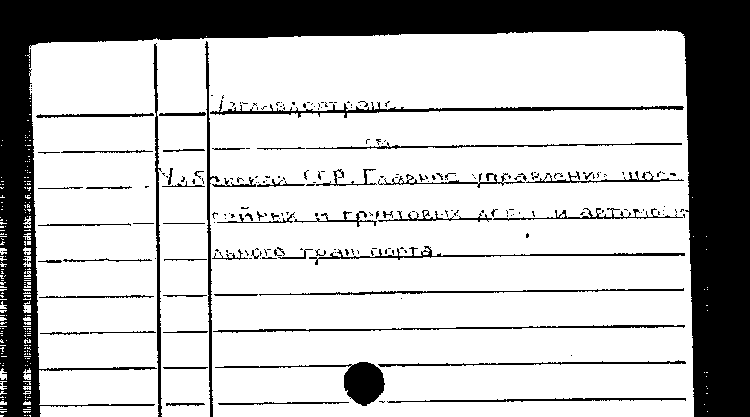 Узглавдортранс.
см.
Узбекская ССР. Главное управление шос-
сейных и грунтовых дорог и автомоби-
льного транспорта.